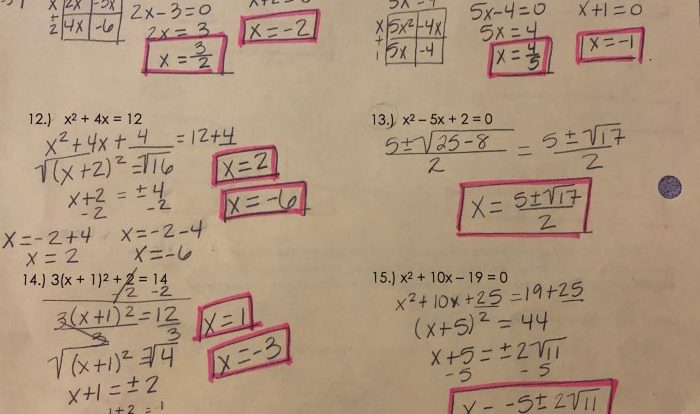 x 2x -3x
+
2 4x -6
2x-3=0
2x = 3
x = 3/2
x=-2
x 5x² -4x
+
1 5x -4
5x-4=0
5x=4
x= 4/5
x+1=0
x=-1
12.) x² + 4x = 12
x²+4x+ 4 = 12+4
√(x+2)² = √16
x+2 = ±4
-2 -2
x=-2+4 x=-2-4
x = 2 x=-6
x=2
x=-6
13.) x² – 5x + 2 = 0
5±√25-8 / 2 = 5±√17 / 2
x = 5±√17 / 2
14.) 3(x + 1)² + 2 = 14
-2 -2
3(x+1)² = 12
3 3
√(x+1)² = √4
x+1 = ±2
x=1
x=-3
15.) x² + 10x – 19 = 0
x²+10x+25 = 19+25
(x+5)² = 44
x+5 = ±2√11
-5 -5
x = -5±2√11